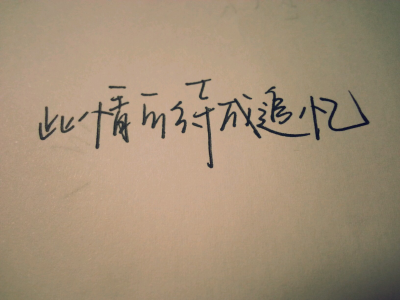 此情可待成追忆